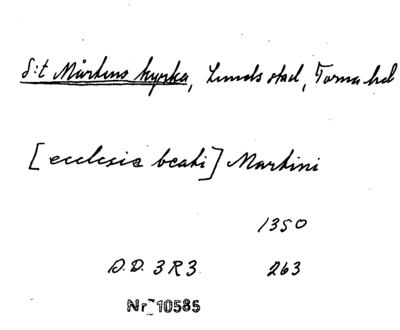 S:t Mårtens kyrka, Lunds stad, Torna hd
[ecclesia beati] Martini
1350
D.D. 3 R 3. 263
Nr 10585